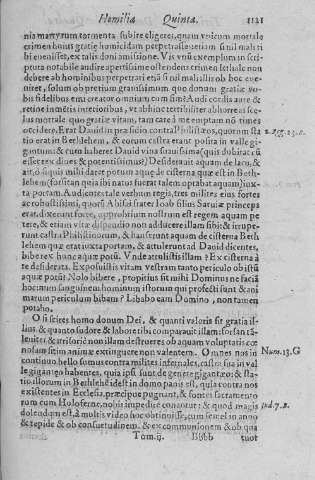 Homilia Quinta. 1121
nia martyrum tormenta subire eligeret, quam vnicum mortale
crimen huius gratię homicidam perpetrasse: etiam si nil mali ti
bi euenisset, ex talis doni amissione. Vis vnũ exemplum in scri
ptura notabile audire apertissime ostendens crimen lethale non
debere ab hominibus perpetrari etsi si nil mali illis ob hoc eue-
niret, solum ob pretium grauissimum quo donum gratiæ vo-
bis fidelibus emit creator omnium cum sint? Audi cordis aure &
retine in mētis interioribus, vt abhinc terribiliter abhorreas sce-
lus mortale quo gratiæ vitam, tam care à me emptam nõ times
occidere. Erat Dauid in præsidio contra Philistæos, quorum sta
tio erat in Bethlehem, & eorum castra erant posita in valle gi-
gantum: & cum haberet Dauid vina suauissima (quis dubitat cũ
esset rex diues & potentissimus?) Desiderauit aquam de lacu, &
ait, ô si quis mihi daret potum aquę de cisterna quæ est in Beth-
lehem (forsitan quia ibi natus fuerat talem optabat aquam) iux-
ta portam. Audientes tale verbum regis, tres milites eius fortes
ac robustissimi, quorũ Abisai frater Ioab filius Saruiæ princeps
erat, dixerunt forte, opprobrium nostrum est regem aquam pe
tere, & etiam vitæ dispendio non adducere illam sibi: & irrupe-
runt castra Philistinorum, & hauserunt aquam de cisterna Beth
lehem quæ erat iuxta portam, & attulerunt ad Dauid dicentes,
bibe rex hunc aquæ potũ. Vnde attulistis illam? Ex cisterna à
te desiderata. Exposuistis vitam vestram tanto periculo ob istũ
aquæ potũ? Nolo bibere, propitius sit mihi Dominus ne faciā
hoc: num sanguinem hominum istorum qui profecti sunt & ani
marum periculum bibam? Libabo eam Domino, non tamen
potabo.
O si scires homo donum Dei, & quanti valoris sit gratia il-
lius & quanto sudore & labore tibi comparauit illam:
nolam sitim animæ extinguere non valentem. Omnes nos in
continuo bello sumus contra milites infernales, castra sua in val
le gigantum habentes, quia ipsi sunt de genere gigantæo: & sta-
tio illorum in Bethlehē idest in domo panis est, quia contra nos
existentes in Ecclesia præcipue pugnant, & fontes sacramento
rum cum Holoferne, nobis impedire conantur: & quod magis
dolendum est, à multis video hoc obtinuisse, cum semel in anno
& tepide & ob consuetudinem, & ex communionem & ob qua
Tom. ij. Bbbb tuor
2. Reg. 23. c.
Num. 13. G
Iud. 7. B.